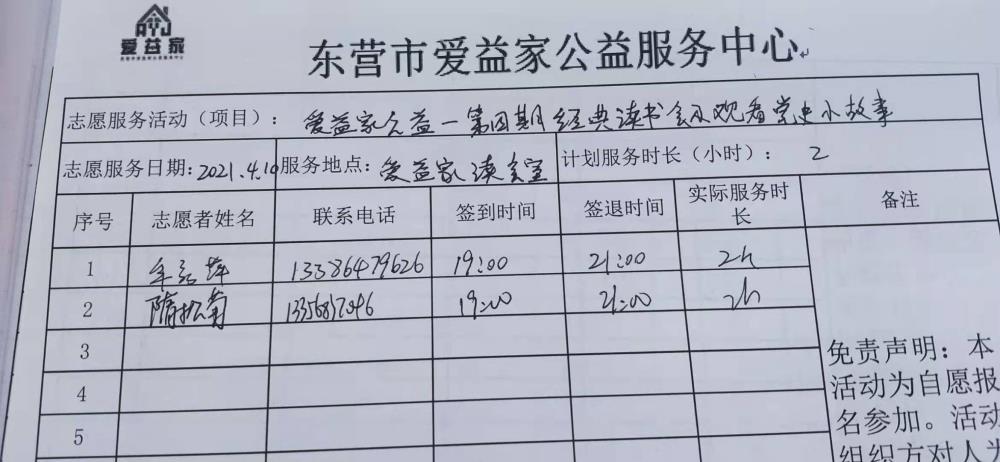 爱益家
东营市爱益家公益服务中心
志愿服务活动（项目）： 爱益家公益一第四期经典读书会及观看党史小故事
志愿服务日期:2021.4.10 服务地点: 爱益家读书室 计划服务时长（小时）： 2
序号 志愿者姓名 联系电话 签到时间 签退时间 实际服务时长 备注
1 13386479626 19:00 21:00 2h
2 隋松菊 19:00 21:00 2h
3
4
5
免责声明：本
活动为自愿报
名参加。活动
组织方对人为